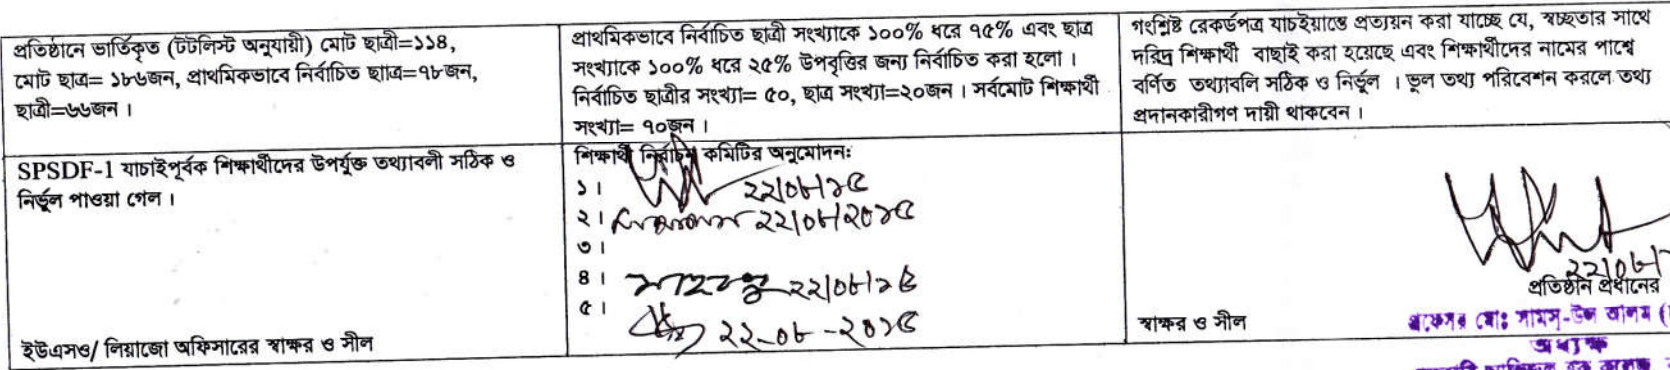 প্রতিষ্ঠানে ভার্তিকৃত (টটলিস্ট অনুযায়ী) মোট ছাত্রী=১১৪,
মোট ছাত্র= ১৮৬জন, প্রাথমিকভাবে নির্বাচিত ছাত্র=৭৮জন,
ছাত্রী=৬৬জন।
প্রাথমিকভাবে নির্বাচিত ছাত্রী সংখ্যাকে ১০০% ধরে ৭৫% এবং ছাত্র
সংখ্যাকে ১০০% ধরে ২৫% উপবৃত্তির জন্য নির্বাচিত করা হলো।
নির্বাচিত ছাত্রীর সংখ্যা= ৫০, ছাত্র সংখ্যা=২০জন। সর্বমোট শিক্ষার্থী
সংখ্যা= ৭০জন।
সংশ্লিষ্ট রেকর্ডপত্র যাচইয়ান্তে প্রত্যয়ন করা যাচ্ছে যে, স্বচ্ছতার সাথে
দরিদ্র শিক্ষার্থী বাছাই করা হয়েছে এবং শিক্ষার্থীদের নামের পাশ্বে
বর্ণিত তথ্যাবলি সঠিক ও নির্ভূল । ভুল তথ্য পরিবেশন করলে তথ্য
প্রদানকারীগণ দায়ী থাকবেন।
SPSDF-1 যাচাইপূর্বক শিক্ষার্থীদের উপর্যুক্ত তথ্যাবলী সঠিক ও
নির্ভূল পাওয়া গেল।
ইউএসও/ লিয়াজো অফিসারের স্বাক্ষর ও সীল
শিক্ষার্থী নির্বাচন কমিটির অনুমোদনঃ
১। ২২/০৮/১৫
২। ২২/০৮/২০১৫
৩।
৪। ২২/০৮/১৫
৫। ২২-০৮-২০১৫
২২/০৮/
প্রতিষ্ঠান প্রধানের
স্বাক্ষর ও সীল
প্রফেসর মোঃ সামস্-উল আলম (
অধ্যক্ষ